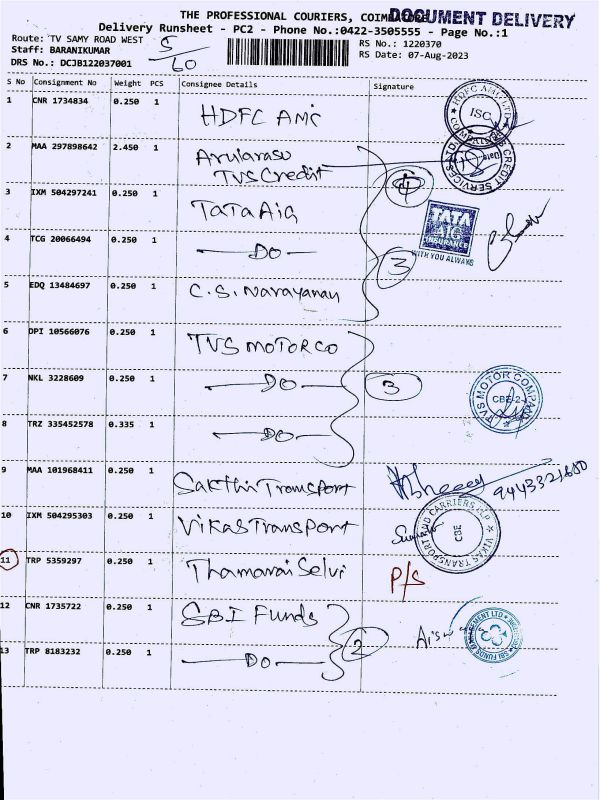 THE PROFESSIONAL COURIERS, COIMBATORE
DOCUMENT DELIVERY
Delivery Runsheet - PC2 - Phone No.:0422-3505555 - Page No.:1
Route: TV SAMY ROAD WEST
5/60
RS No.: 1220370
Staff: BARANIKUMAR
RS Date: 07-Aug-2023
DRS No.: DCJB122037001
S No Consignment No Weight PCS Consignee Details Signature
1 CNR 1734834 0.250 1 HDFC AMC
HDFC AMC LTD ISC
2 MAA 297898642 2.450 1 Arujarasu
TVS Credit
CREDIT SERVICES LTD
4
3 IXM 504297241 0.250 1 TaTa Aig
TATA AIG INSURANCE
WITH YOU ALWAYS
4 TCG 20066494 0.250 1 — DO —
3
5 EDQ 13484697 0.250 1 C.S. Narayanan
6 DPI 10566076 0.250 1 TVS MOTOR CO
7 NKL 3228609 0.250 1 — DO —
3
TVS MOTOR COMPANY CBE-2
8 TRZ 335452578 0.335 1 — DO —
9 MAA 101968411 0.250 1 Sakthi Transport
9443321680
10 IXM 504295303 0.250 1 Vikas Transport
VIKAS TRANSPORT AND CARRIERS LLP CBE
11 TRP 5359297 0.250 1 Thamarai Selvi P/S
12 CNR 1735722 0.250 1 SBI Funds
2
SBI FUNDS MANAGEMENT LTD
13 TRP 8183232 0.250 1 — DO —